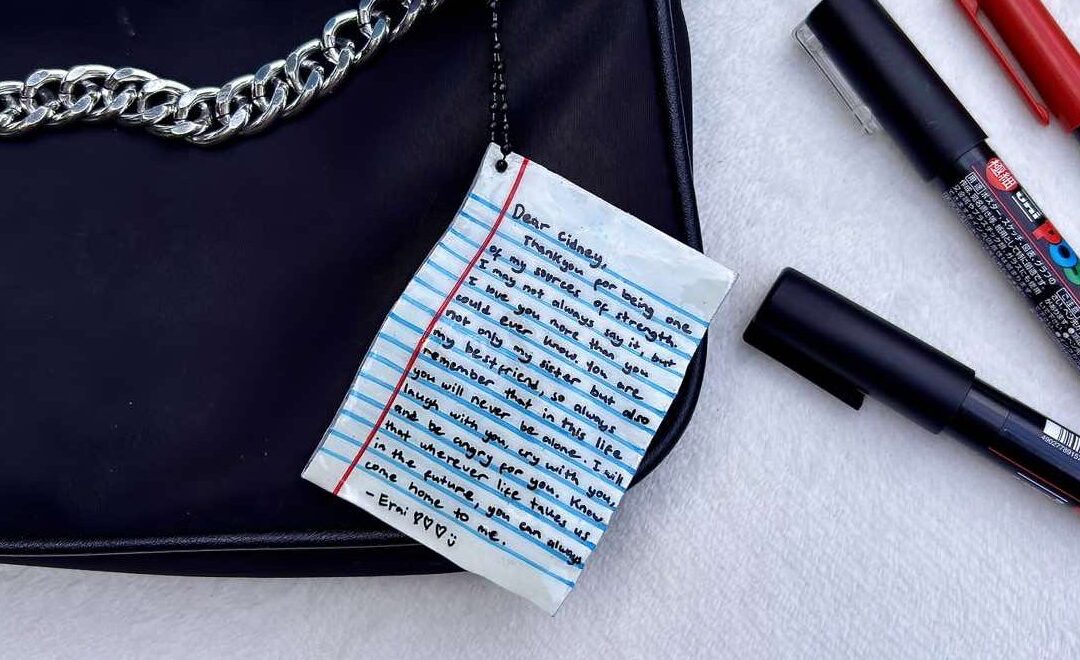 Dear Cidney,
Thankyou for being one
of my sources of strength.
I may not always say it, but
I love you more than you
could ever know. You are
not only my sister but also
my bestfriend, so always
remember that in this life
you will never be alone. I will
laugh with you, cry with you,
and be angry for you. Know
that wherever life takes us
in the future, you can always
come home to me.
- Erni ♡♡♡ ü
極細
uni
PO